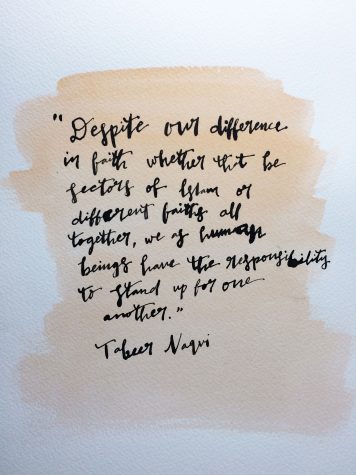 "Despite our difference
in faith whether that be
sectors of Islam or
different faiths all
together, we as human
beings have the responsibility
to stand up for one
another."
Tabeer Naqvi